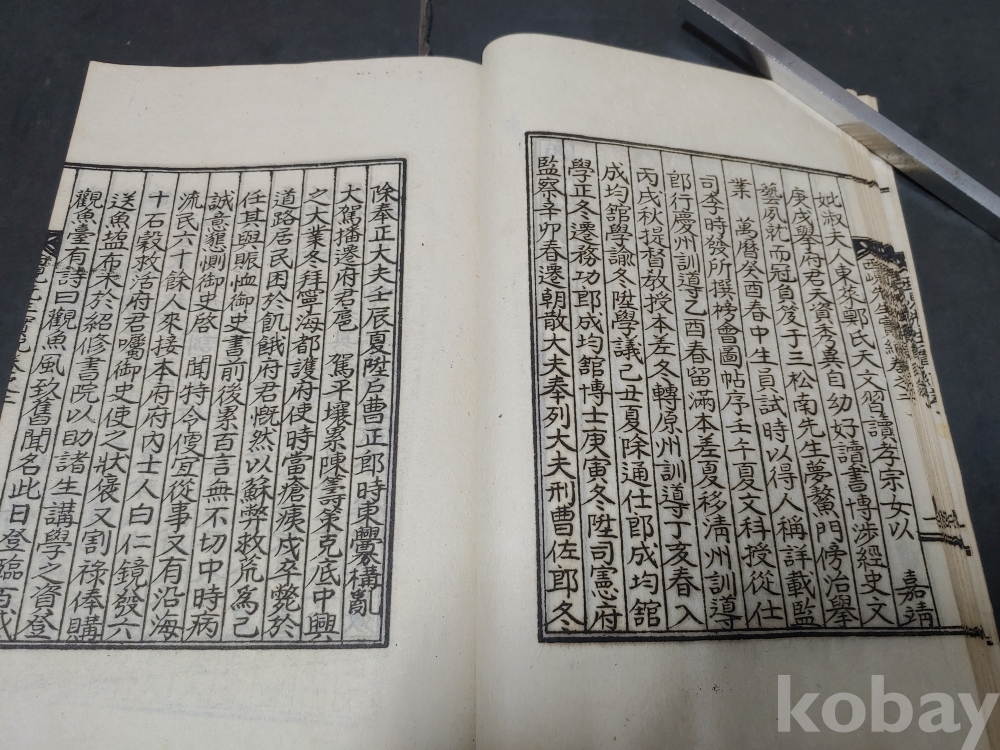 妣淑夫人東萊鄭氏天文習讀孝宗女以 嘉靖
庚戌擧府君天資秀異自幼好讀書博涉經史文
藝夙就而冠負笈于三松南先生夢鰲門傍治擧
業 萬曆癸酉春中生員試時以得人稱詳載監
司李時發所撰榜會圖帖序壬午夏文科授從仕
郎行慶州訓導乙酉春留滿本差夏移淸州訓導
丙戌秋提督敎授本差冬轉原州訓導丁亥春入
成均舘學諭冬陞學議己丑夏除通仕郎成均舘
學正冬遷務功郎成均舘博士庚寅冬陞司憲府
監察辛卯春遷朝散大夫奉列大夫刑曹佐郎冬
除奉正大夫壬辰夏陞戶曹正郎時東釁構亂
大駕播遷府君扈 駕平壤累陳籌策克底中興
之大業冬拜寧海都護府使時當瘡痍戍卒斃於
道路居民困於飢餓府君慨然以蘇弊救荒爲己
任其與賑恤御史書前後累百言無不切中時病
誠意懇惻御史啓 聞特令便宜從事又有沿海
流民六十餘人來接本府府內士人白仁鏡發六
十石穀救活府君囑御史使之狀褒又割祿俸購
送魚鹽布米於紹修書院以助諸生講學之資登
觀魚臺有詩曰觀魚風致舊聞名此日登臨百
kobay